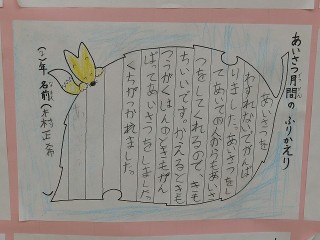 あいさつ月間のふりかえり
あいさつを
わすれないでがんば
りました。あいさつをし
てあいての人からもあいさ
つをしてくれるので、きも
ちいいです。かえるときも
つうがくはんのときもがん
ばってあいさつをしました。
くちがつかれました。
(1)年 名前(木村正希